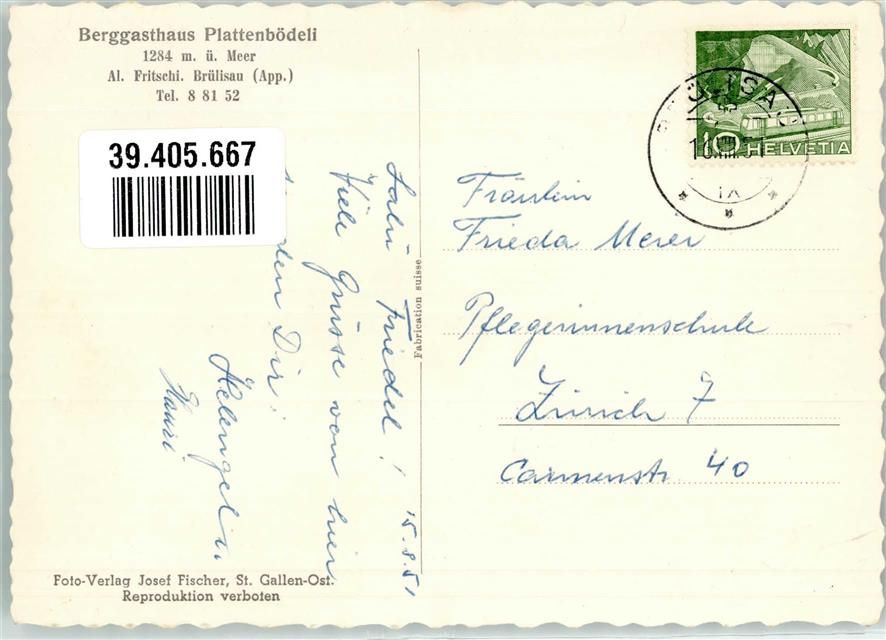 Berggasthaus Plattenbödeli
1284 m. ü. Meer
Al. Fritschi. Brülisau (App.)
Tel. 8 81 52
39.405.667
15.8.51
Salü Friedel!
Viele Grüsse von hier
senden Dir!
Helengeli u.
Hansi
Fabrication suisse
Foto-Verlag Josef Fischer, St. Gallen-Ost.
Reproduktion verboten
10 HELVETIA
16.VIII.51
IX
Fräulein
Frieda Meier
Pflegerinnenschule
Zürich 7
Carmenstr 40